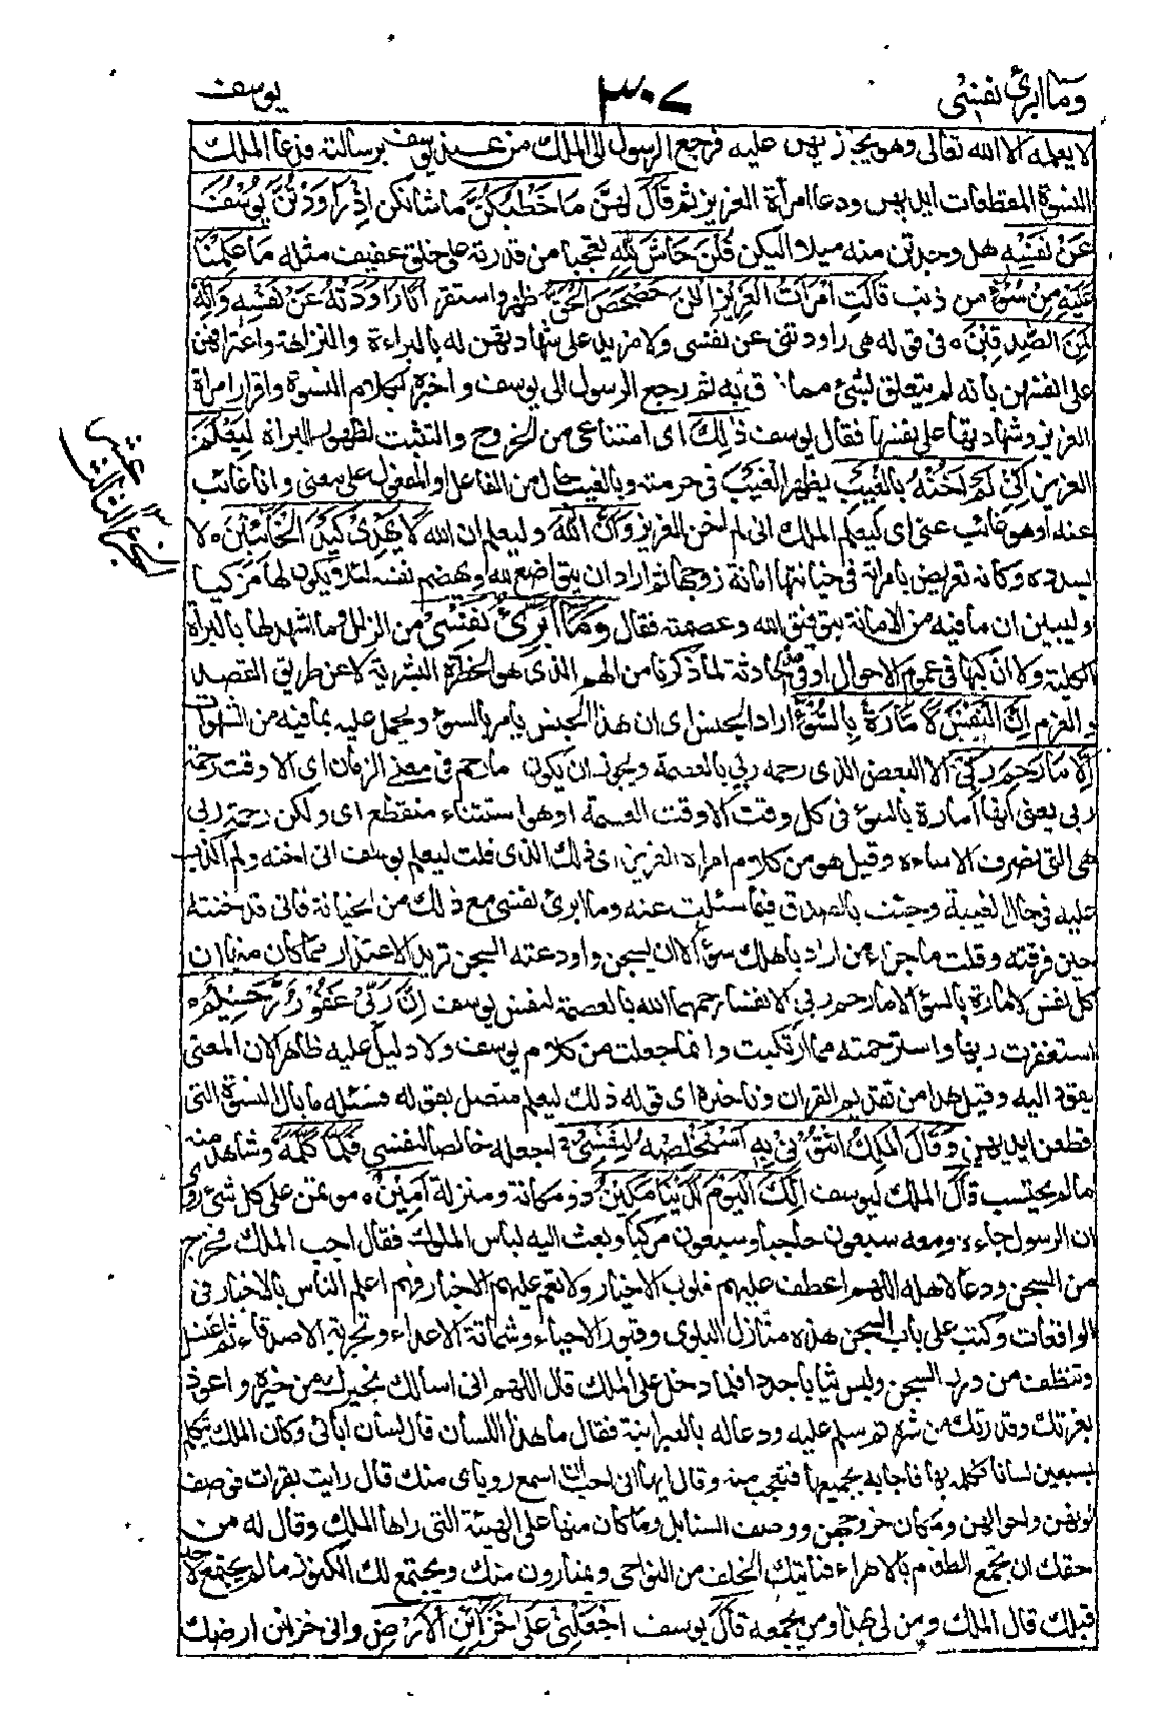 وما ابرئ نفسي ٣٠٧ يوسف
لا يعلمه الا الله تعالى وهو يجازيهن عليه فرجع الرسول الى الملك من عند يوسف برسالته فدعا الملك
النسوة المقطعات ايديهن ودعا امرأة العزيز ثم قَالَ لهن مَا خَطْبُكُنَّ ما شانكن اِذْ رَاوَدْتُّنَّ يُوْسُفَ
عَنْ نَفْسِهٖ هل وجدتن منه ميلا اليكن قُلْنَ حَاشَ لِلّٰهِ تعجبا من قدرته على خلق عفيف مثله مَا عَلِمْنَا
عَلَيْهِ مِنْ سُوْءٍ من ذنب قَالَتِ امْرَاَتُ الْعَزِيْزِ الْئٰنَ حَصْحَصَ الْحَقُّ ظهر واستقر اَنَا رَاوَدْتُّهٗ عَنْ نَفْسِهٖ وَاِنَّهٗ
لَمِنَ الصّٰدِقِيْنَ ه في قوله هي راودتني عن نفسي ولا مزيد على شهادتهن له بالبراءة والنزاهة واعترافهن
على انفسهن بأنه لم يتعلق بشيء مما قرف به ثم رجع الرسول الى يوسف واخبره بكلام النسوة واقرار امرأة
العزيز وشهادتها على نفسها فقال يوسف ذٰلِكَ اى امتناعى من الخروج والتثبت لظهور البراءة لِيَعْلَمَ
العزيز اَنِّيْ لَمْ اَخُنْهُ بِالْغَيْبِ بظهر الغيب فى حرمته وبالغيب حال من الفاعل او المفعول على معنى وانا غائب
عنه او هو غائب عنى اى ليعلم الملك انى لم اخن العزيز وَاَنَّ اللّٰهَ وليعلم ان الله لَا يَهْدِيْ كَيْدَ الْخَائِنِيْنَ ه لا
يسدده وكانه تعريض بامرأته فى خيانتها امانة زوجها ثم اراد ان يتواضع لله ويهضم نفسه لئلا يكون لها مزكيا
وليبين ان ما فيه من الامانة بتوفيق الله وعصمته فقال وَمَا اُبَرِّئُ نَفْسِيْ من الزلل وما اشهد لها بالبراءة
الكلية ولا ازكيها فى عموم الاحوال او فى هذه الحادثة لما ذكرنا من الهم الذى هو الخطرة البشرية لا عن طريق القصد
والعزم اِنَّ النَّفْسَ لَاَمَّارَةٌ بِالسُّوْءِ اراد الجنس اى ان هذا الجنس يأمر بالسوء ويحمل عليه بما فيه من الشهوات
اِلَّا مَا رَحِمَ رَبِّيْ الا البعض الذى رحمه ربى بالعصمة ويجوز ان يكون ما رحم فى معنى الزمان اى الا وقت رحمة
ربى يعنى انها امارة بالسوء فى كل وقت الا وقت العصمة او هو استثناء منقطع اى ولكن رحمة ربى
هى التى تصرف الاساءة وقيل هو من كلام امرأة العزيز اى ذلك الذى قلت ليعلم يوسف انى لم اخنه ولم اكذب
عليه فى حال الغيبة وجئت بالصدق فيما سئلت عنه وما ابرئ نفسى مع ذلك من الخيانة فانى قد خنته
حين قرفته وقلت ما جزاء من اراد باهلك سوءا الا ان يسجن واودعته السجن تريد الاعتذار مما كان منها ان
كل نفس لامارة بالسوء الا ما رحم ربى الا نفسا رحمها الله بالعصمة كنفس يوسف اِنَّ رَبِّيْ غَفُوْرٌ رَّحِيْمٌ ه
استغفرت ربها واسترحمته مما ارتكبت وانما جعلت من كلام يوسف ولا دليل عليه ظاهر لان المعنى
يقود اليه وقيل هذا من تقديم القران وتاخيره اى قوله ذلك ليعلم متصل بقوله فسئله ما بال النسوة التى
قطعن ايديهن وَقَالَ الْمَلِكُ ائْتُوْنِيْ بِهٖ اَسْتَخْلِصْهُ لِنَفْسِيْ اجعله خالصا لنفسى فَلَمَّا كَلَّمَهٗ وشاهد منه
ما لم يحتسب قَالَ الملك ليوسف اِنَّكَ الْيَوْمَ لَدَيْنَا مَكِيْنٌ ذو مكانة ومنزلة اَمِيْنٌ ه مؤتمن على كل شئ روى
ان الرسول جاءه ومعه سبعون حاجبا وسبعون مركبا وبعث اليه لباس الملوك فقال اجب الملك فخرج
من السجن ودعا لاهله اللهم اعطف عليهم قلوب الاخيار ولا تعم عليهم الاخبار فهم اعلم الناس بالاخبار فى
الواقعات وكتب على باب السجن هذه منازل البلوى وقبور الاحياء وشماتة الاعداء وتجربة الاصدقاء ثم اغتسل
وتنظف من درن السجن ولبس ثيابا جددا فلما دخل على الملك قال اللهم انى اسالك بخيرك من خيره واعوذ
بعزتك وقدرتك من شره ثم سلم عليه ودعا له بالعبرانية فقال ما هذا اللسان قال لسان ابائى وكان الملك يتكلم
بسبعين لسانا فكلمه بها فاجابه بجميعها فتعجب منه وقال ايها انى احب ان اسمع رؤياى منك قال رايت بقرات فوصف
لونهن واحوالهن ومكان خروجهن ووصف السنابل وما كان منها على الهيئة التى راها الملك وقال له من
حقك ان تجمع الطعام بالاهراء فيأتيك الخلق من النواحى ويمتارون منك ويجتمع لك الكنوز ما لم يجتمع لاحد
قبلك قال الملك ومن لى بهذا ومن يجمعه قَالَ يوسف اجْعَلْنِيْ عَلٰى خَزَائِنِ الْاَرْضِ ولنى خزائن ارضك
الجزء الثالث عشر